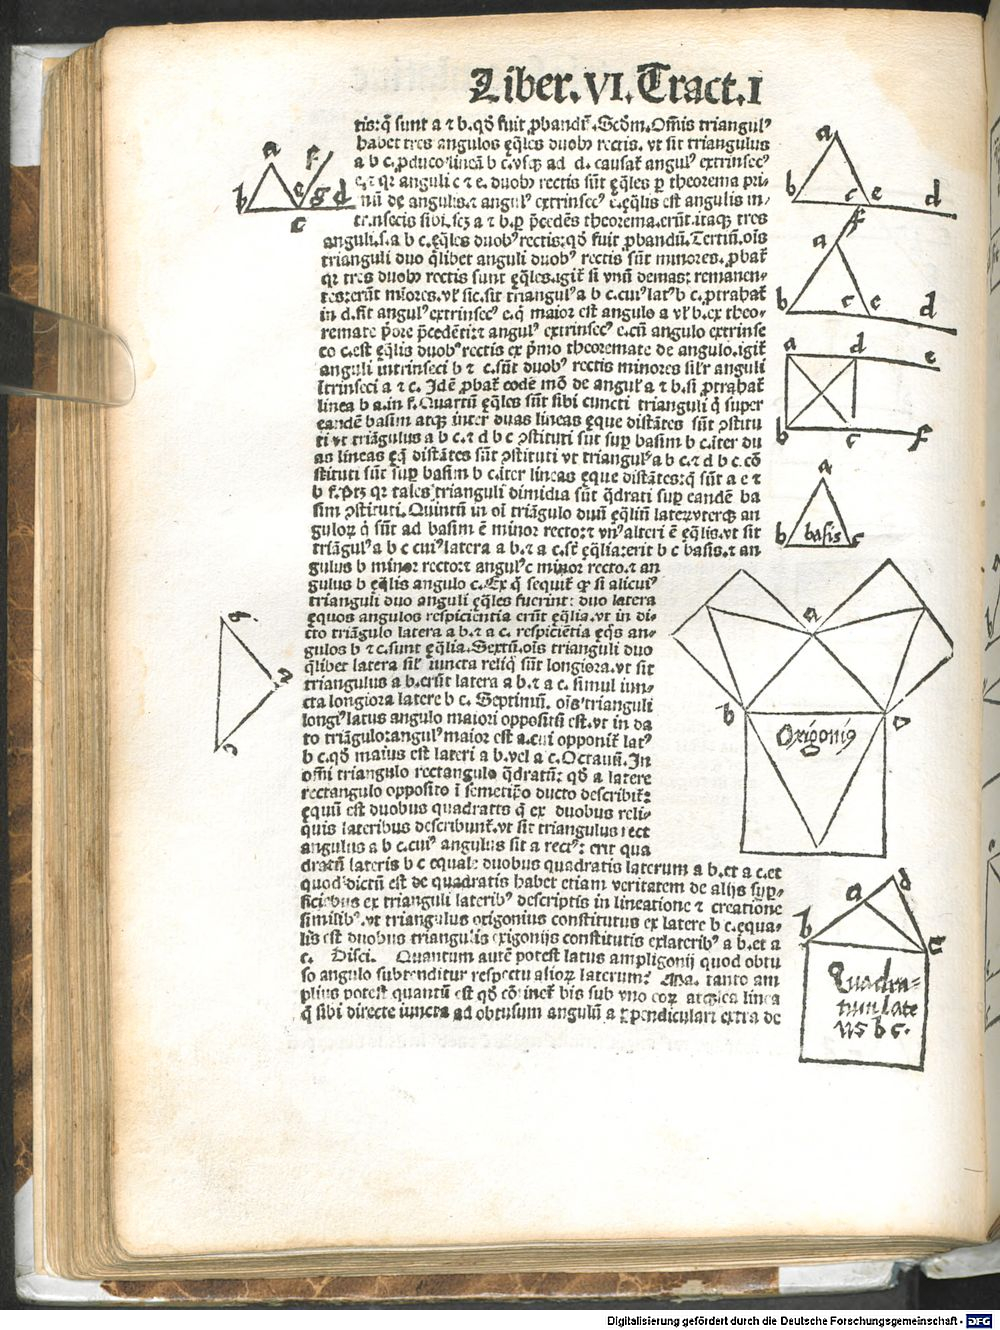 Liber.VI.Tract.I
tis:q̃ sunt a ⁊ b.qđ fuit ꝓbandũ.Scđm.Om̃is triangulꝰ
habet tres angulos eq̃les duobꝰ rectis. vt sit triangulus
a b c.ꝓduco lineã b c.vsqꝫ ad d. causat̃ angulꝰ extrinsecꝰ
e.⁊ qꝛ anguli c ⁊ e. duobꝰ rectis sũt eq̃les ꝑ theorema pri-
mũ de angulis.⁊ angulꝰ extrinsecꝰ e.eq̃lis est angulis in-
trinsecis sibi.scꝫ a ⁊ b.ꝑ p̃cedẽs theorema.erũt itaqꝫ tres
anguli.s.a b c.eq̃les duobꝰ rectis:qđ fuit ꝓbandũ.Tertiũ.oĩs
trianguli duo q̃libet anguli duobꝰ rectis sũt minores.ꝓbat̃
qꝛ tres duobꝰ rectis sunt eq̃les.igit̃ si vnũ demas: remanen-
tes:erũt mĩores.vł sic.sit triangulꝰ a b c.cuiꝰ latꝰ b c.ꝓtrahat̃
in d.fit angulꝰ extrinsecꝰ e.q̃ maior est angulo a vł b.ex theo-
remate p̃ore p̃cedẽti:⁊ angulꝰ extrinsecꝰ e.cũ angulo extrinse
co c.est eq̃lis duobꝰ rectis ex p̃mo theoremate de angulo.igit̃
anguli intrinseci b ⁊ c.sũt duobꝰ rectis minores silr̃ anguli
ĩtrinseci a ⁊ c. Idẽ ꝓbat̃ eodẽ mõ de angul̃ a ⁊ b.si ꝓtrahat̃
linea b a.in f.Quartũ eq̃les sũt sibi cuncti trianguli q̃ super
eandẽ basim atqꝫ inter duas lineas eque distãtes sũt ꝯstitu
ti vt triãgulus a b c.⁊ d b c ꝯstituti sũt suꝑ basim b c.ĩter du
as lineas eq̃ distãtes sũt ꝯstituti vt triangulꝰ a b c.⁊ d b c.cõ
stituti sũt suꝑ basim b c.ĩter lineas eque distãtes:q̃ sũt a e ⁊
b f.Ptꝫ qꝛ tales trianguli dimidia sũt q̃drati suꝑ eandẽ ba
sim ꝯstituti.Quintũ in oĩ triãgulo duũ eq̃liũ laterꝝ vterqꝫ an
guloꝝ q̃ sũt ad basim ẽ minor recto:⁊ vnꝰ alteri ẽ eq̃lis.vt sit
triãgulꝰ a b c cuiꝰ latera a b.⁊ a c.sĩt eq̃lia:erit b c basis.⁊ an
gulus b minor recto:⁊ angulꝰ c minor recto.⁊ an
gulus b eq̃lis angulo c.Ex q̃ sequit̃ qꝙ si alicuiꝰ
trianguli duo anguli eq̃les fuerint: duo latera
equos angulos respicientia erũt eq̃lia.vt in di-
cto triãgulo latera a b.⁊ a c. respiciẽtia eq̃s an-
gulos b ⁊ c.sunt eq̃lia.Sextũ.oĩs trianguli duo
q̃libet latera sił iuncta reliq̃ sũt longiora.vt sit
triangulus a b.erũt latera a b.⁊ a c. simul iun-
cta longiora latere b c. Septimũ. oĩs trianguli
longiꝰ latus angulo maiori oppositũ est.vt in da
to triãgulo:angulꝰ maior est a.cui opponit̃ latꝰ
b c.qđ maius est lateri a b.vel a c.Octauũ.In
om̃i triangulo rectangulo q̃dratũ: qđ a latere
rectangulo opposito ĩ semetip̃o ducto describit̃:
equũ est duobus quadratis q̃ ex duobus reli-
quis lateribus describunt̃.vt sit triangulus rect
angulus a b c.cuiꝰ angulus sit a rectꝰ: erit qua
dratũ lateris b c equale duobus quadratis laterum a b.et a c.et
quod dictũ est de quadratis habet etiam veritatem de alijs suꝑ-
ficiebus ex trianguli lateribꝰ descriptis in lineatione ⁊ creatione
similibꝰ.vt triangulus origonius constitutus ex latere b c.equa-
lis est duobus triangulis origonijs constitutis exlateribꝰ a b.et a
c. Disci. Quantum autẽ potest latus ampligonij quod obtu
so angulo subtenditur respectu alioꝝ laterum? Ma. tanto am
plius potest quantũ est qđ cõtinet̃ bis sub vno eoꝝ atqꝫ ea linea
q̃ sibi directe iuncta ad obtusum angulũ a ꝑpendiculari extra de
a f
b e g d
c
b
a
c
a
b c e d
f
a
b c e d
a d e
b c f
a
b basis c
a
b c
Origoniꝰ
a d
b c
Quadra=
tum late
ris b c.
Digitalisierung gefördert durch die Deutsche Forschungsgemeinschaft - DFG